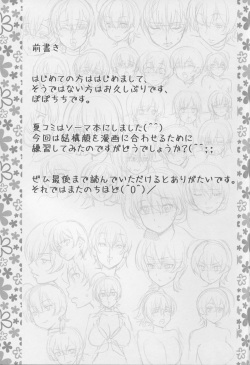 前書き
はじめての方ははじめまして、
そうではない方はお久しぶりです、
ぽぽちちです。
夏コミはソーマ本にしました(^^)
今回は結構顔を漫画に合わせるために
練習してみたのですがどうでしょうか?(^^;;
ぜひ最後まで読んでいただけるとありがたいです。
それではまたのちほど(^0^)／